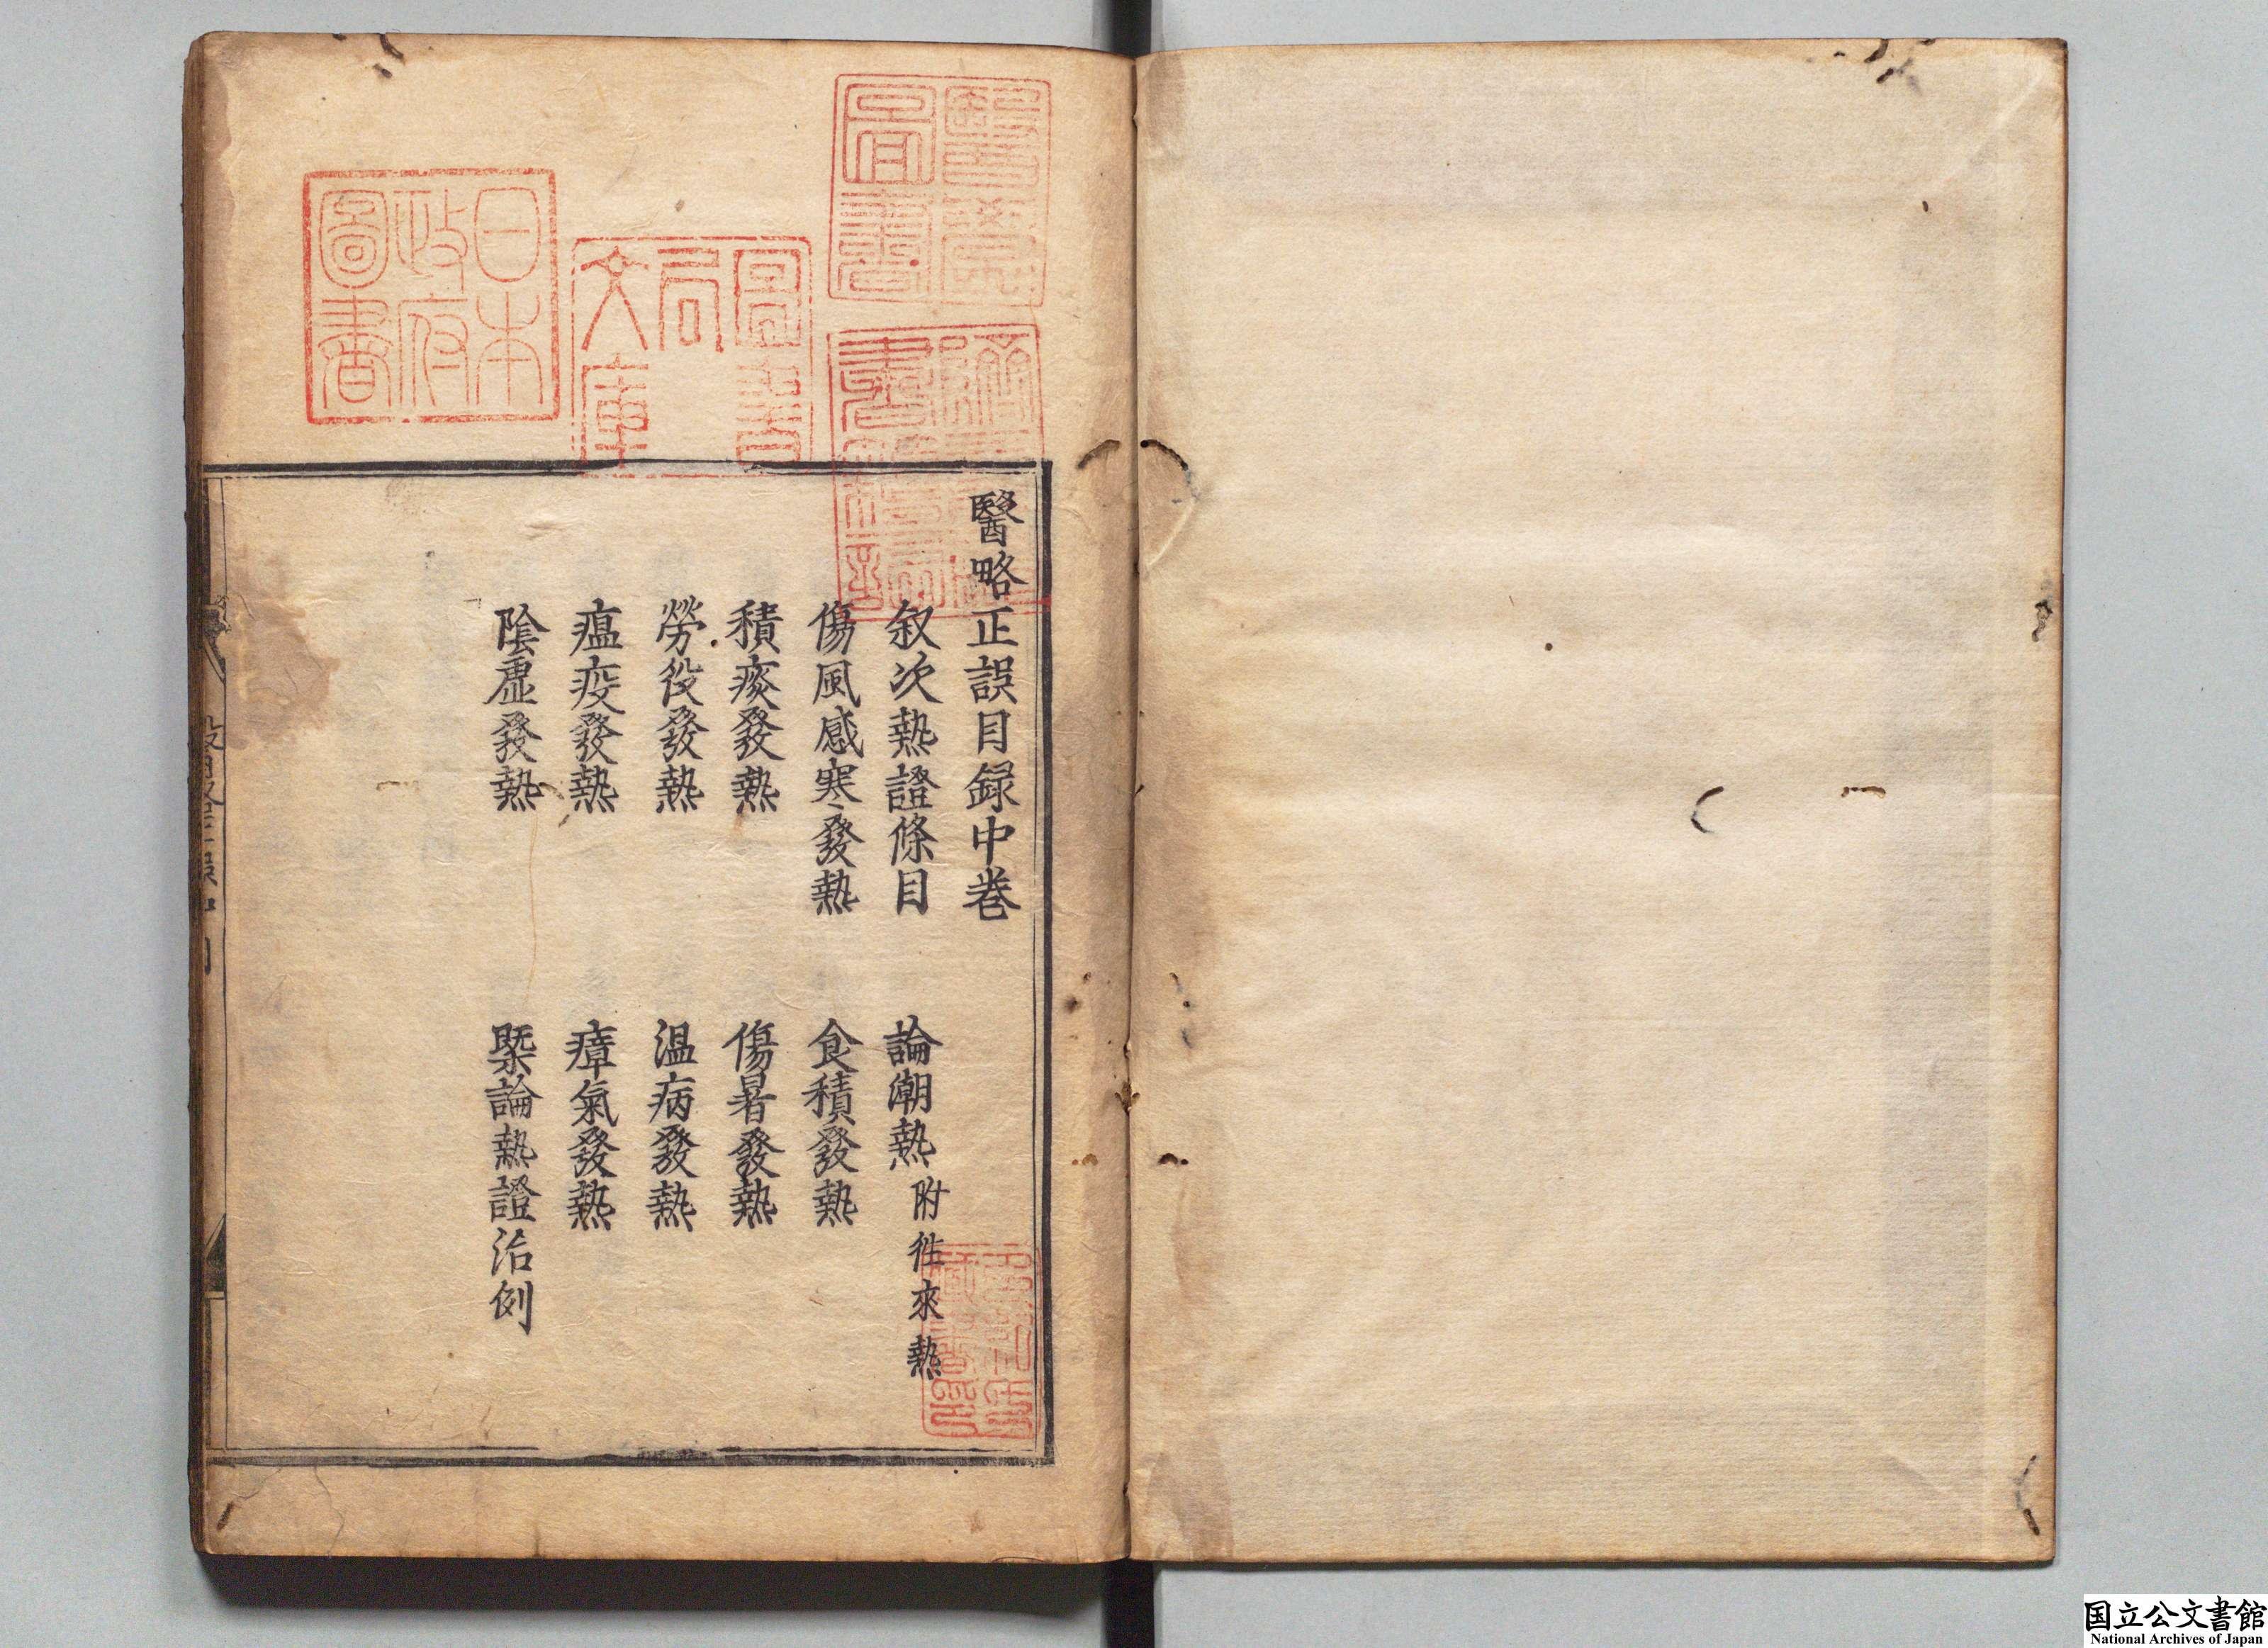 醫略正誤目録中巻
叙次熱證條目 論潮熱 附徃來熱
傷風感寒發熱 食積發熱
積痰發熱 傷暑發熱
勞役發熱 温病發熱
瘟疫發熱 瘴氣發熱
陰虛發熱 槩論熱證治例
日本
政府
圖書
圖書
局
文庫
国立公文書館
National Archives of Japan